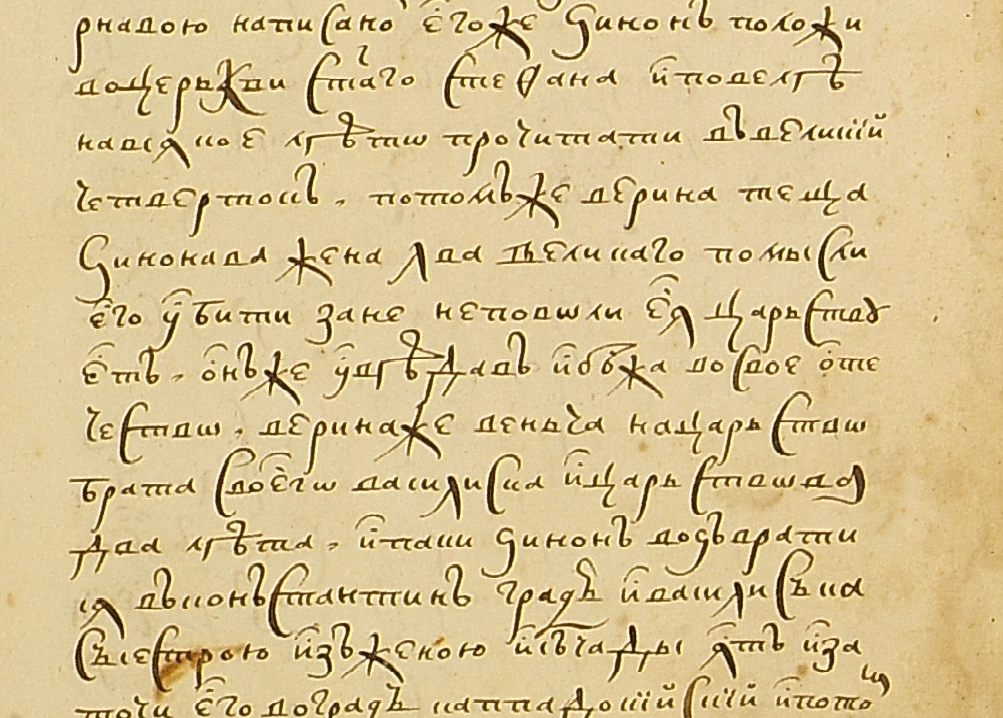 рнадою написано его́же Зинонъ положи
воцерькви ст҃аго стефана и҆повелѣ
навсѧкое лѣтѡ прочитати въвеликїй
четвертокъ. потомъже верина теща
Зинонава жена лва великаго помысли
е҆го у҆бити зане неподшли е҆ѧ царьствꙋ
е҆тъ. о҆нъже у҆вѣдавъ и҆збѣжа восвое о҆те
чествѡ. веринаже венъча нацарьствѡ
брата своегѡ василиска и҆царьствѡва
два лѣта. и҆паки Зинонъ возъврати
сѧ въконъстантинъ градъ и҆василисъка
съсестрою и҆зъженою и҆съчады ꙗ҆тъ и҆за
точи е҆го воградъ каппадокїйскїй и҆пото